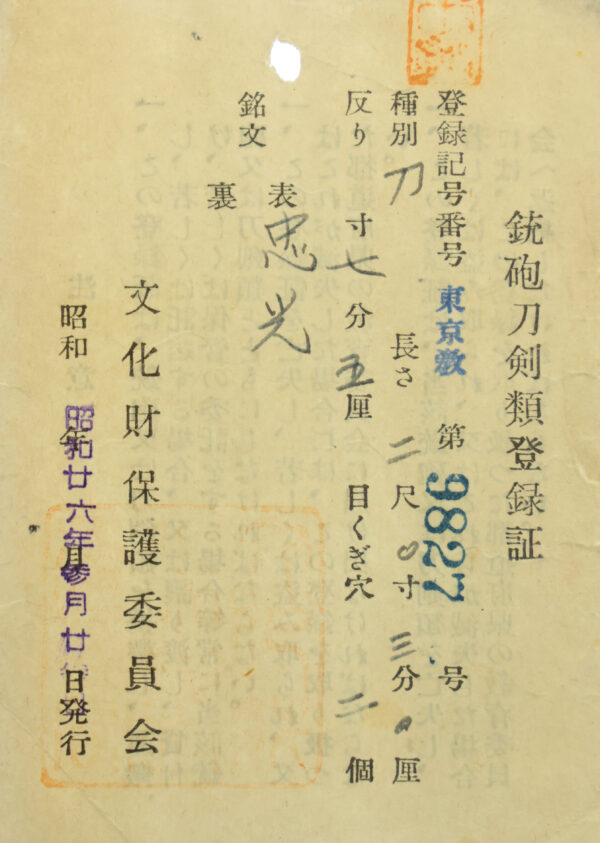 銃砲刀剣類登録証
登録記号番号 東京教 第 9827 号
種別 刀 長さ 二尺〇寸三分〇厘
反り 寸七分五厘 目くぎ穴 二個
銘文 表 忠光
裏
文化財保護委員会
昭和 年 月 日発行
昭和廿六年参月廿